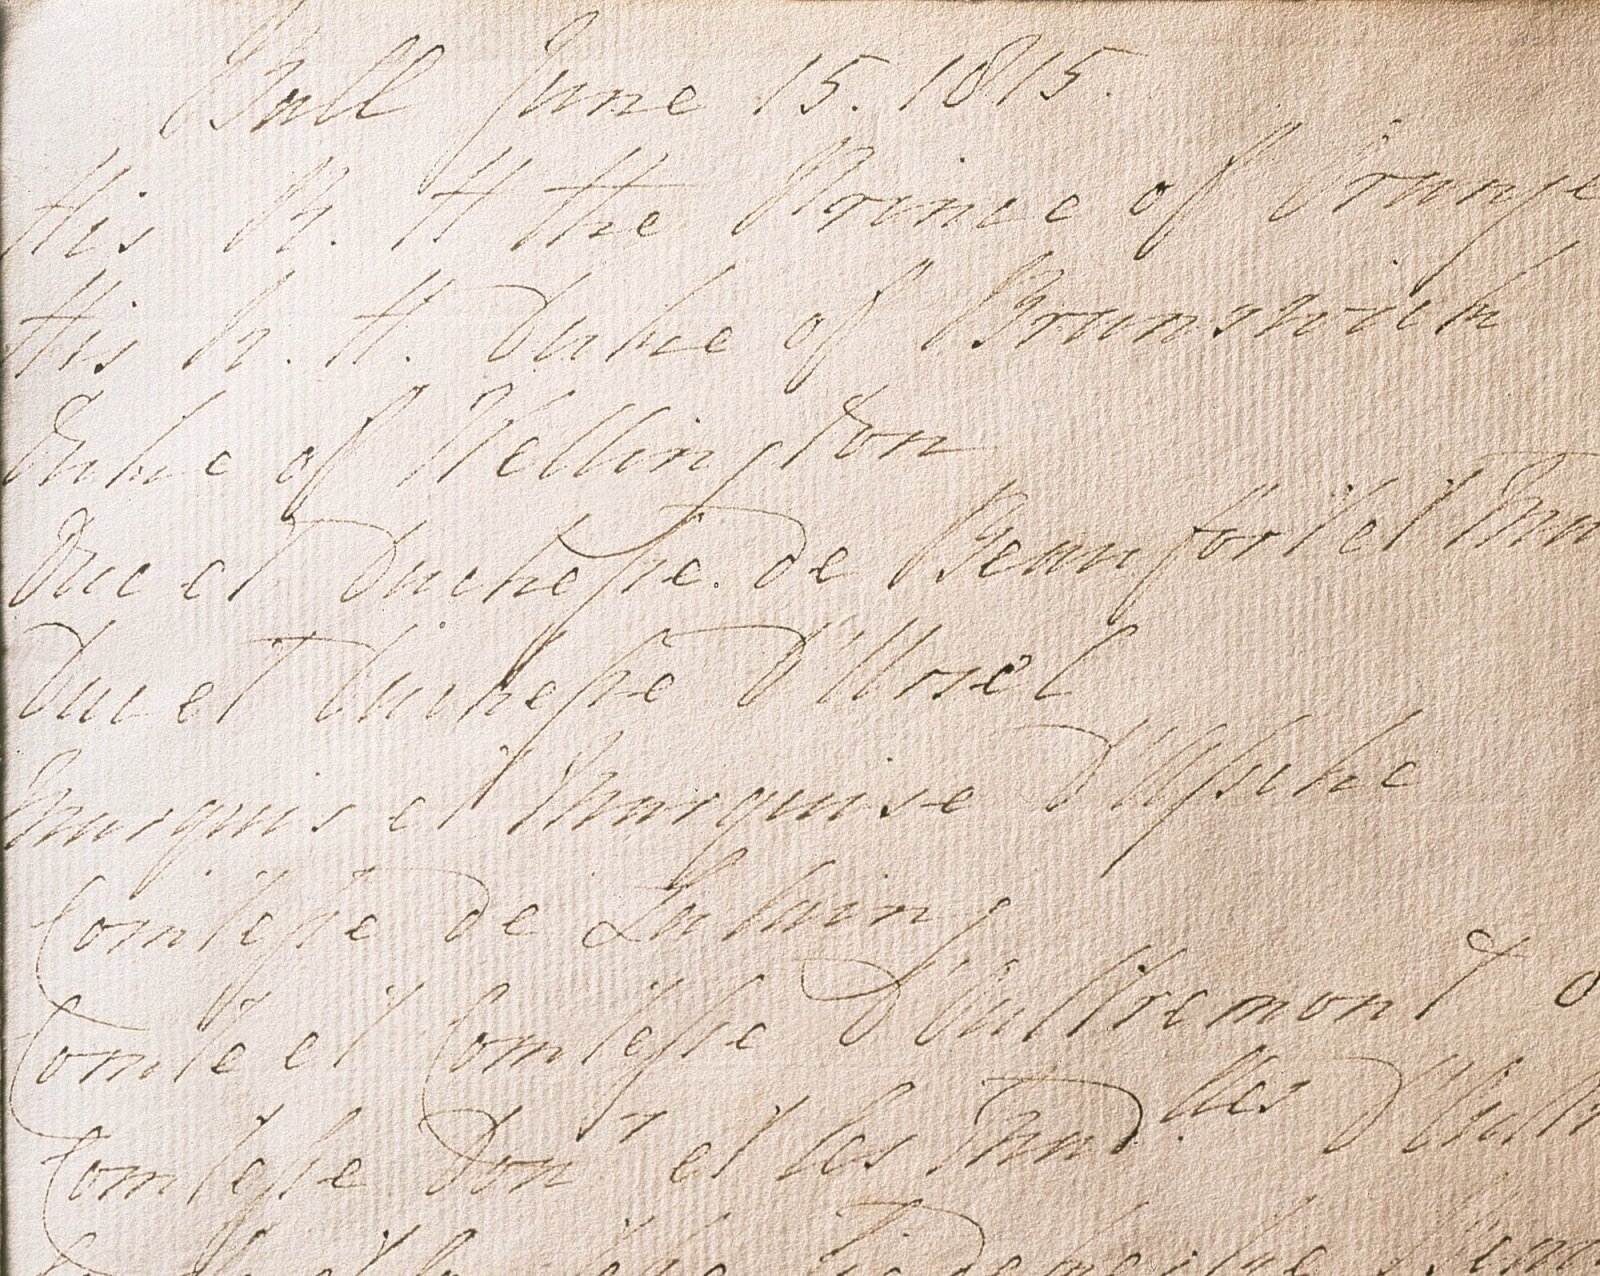 Ball June 15. 1815.
His R. H the Prince of Orange
His R. H. Duke of Brunswick
Duke of Wellington
Duc et Duchesse de Beaufort et
Duc et Duchesse D'Ursel
Marquis et Marquise D'Assche
Comtesse de
Comte et Comtesse D'Oultremont
Comtesse Dou et les